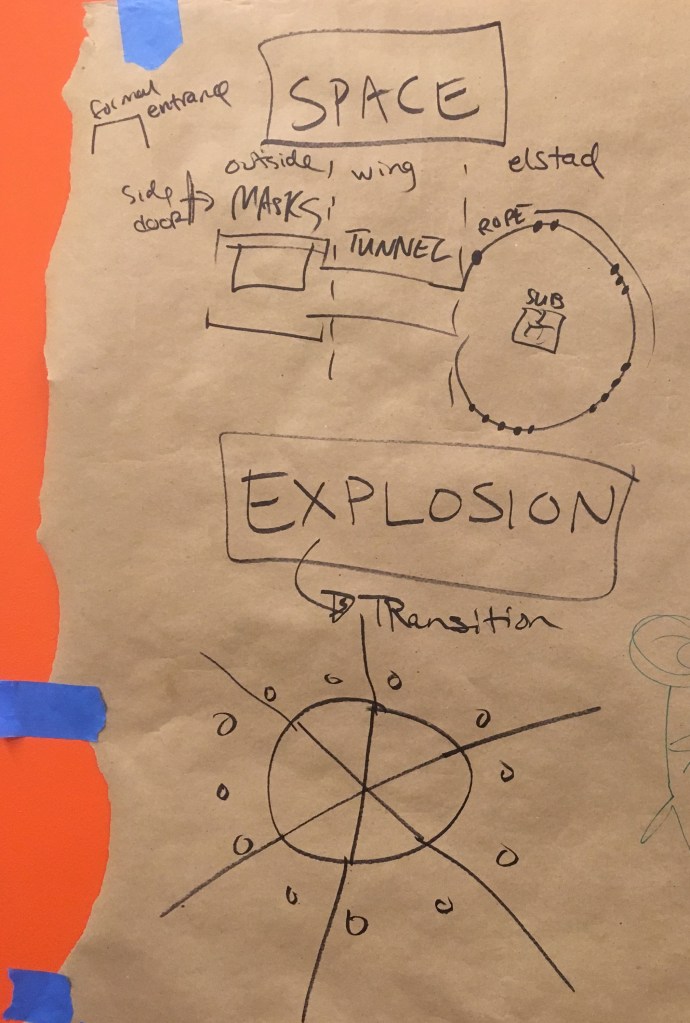 SPACE
formal
entrance
outside wing elstad
side
door
MASKS
TUNNEL
ROPE
SUB
EXPLOSION
TRansition